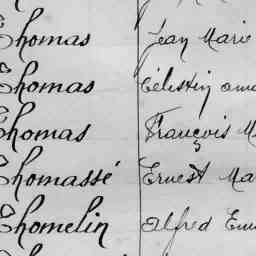 Thomas Jean Marie
Thomas Célestin
Thomas François M
Thomassé Ernest Ma
Thomelin Alfred Em